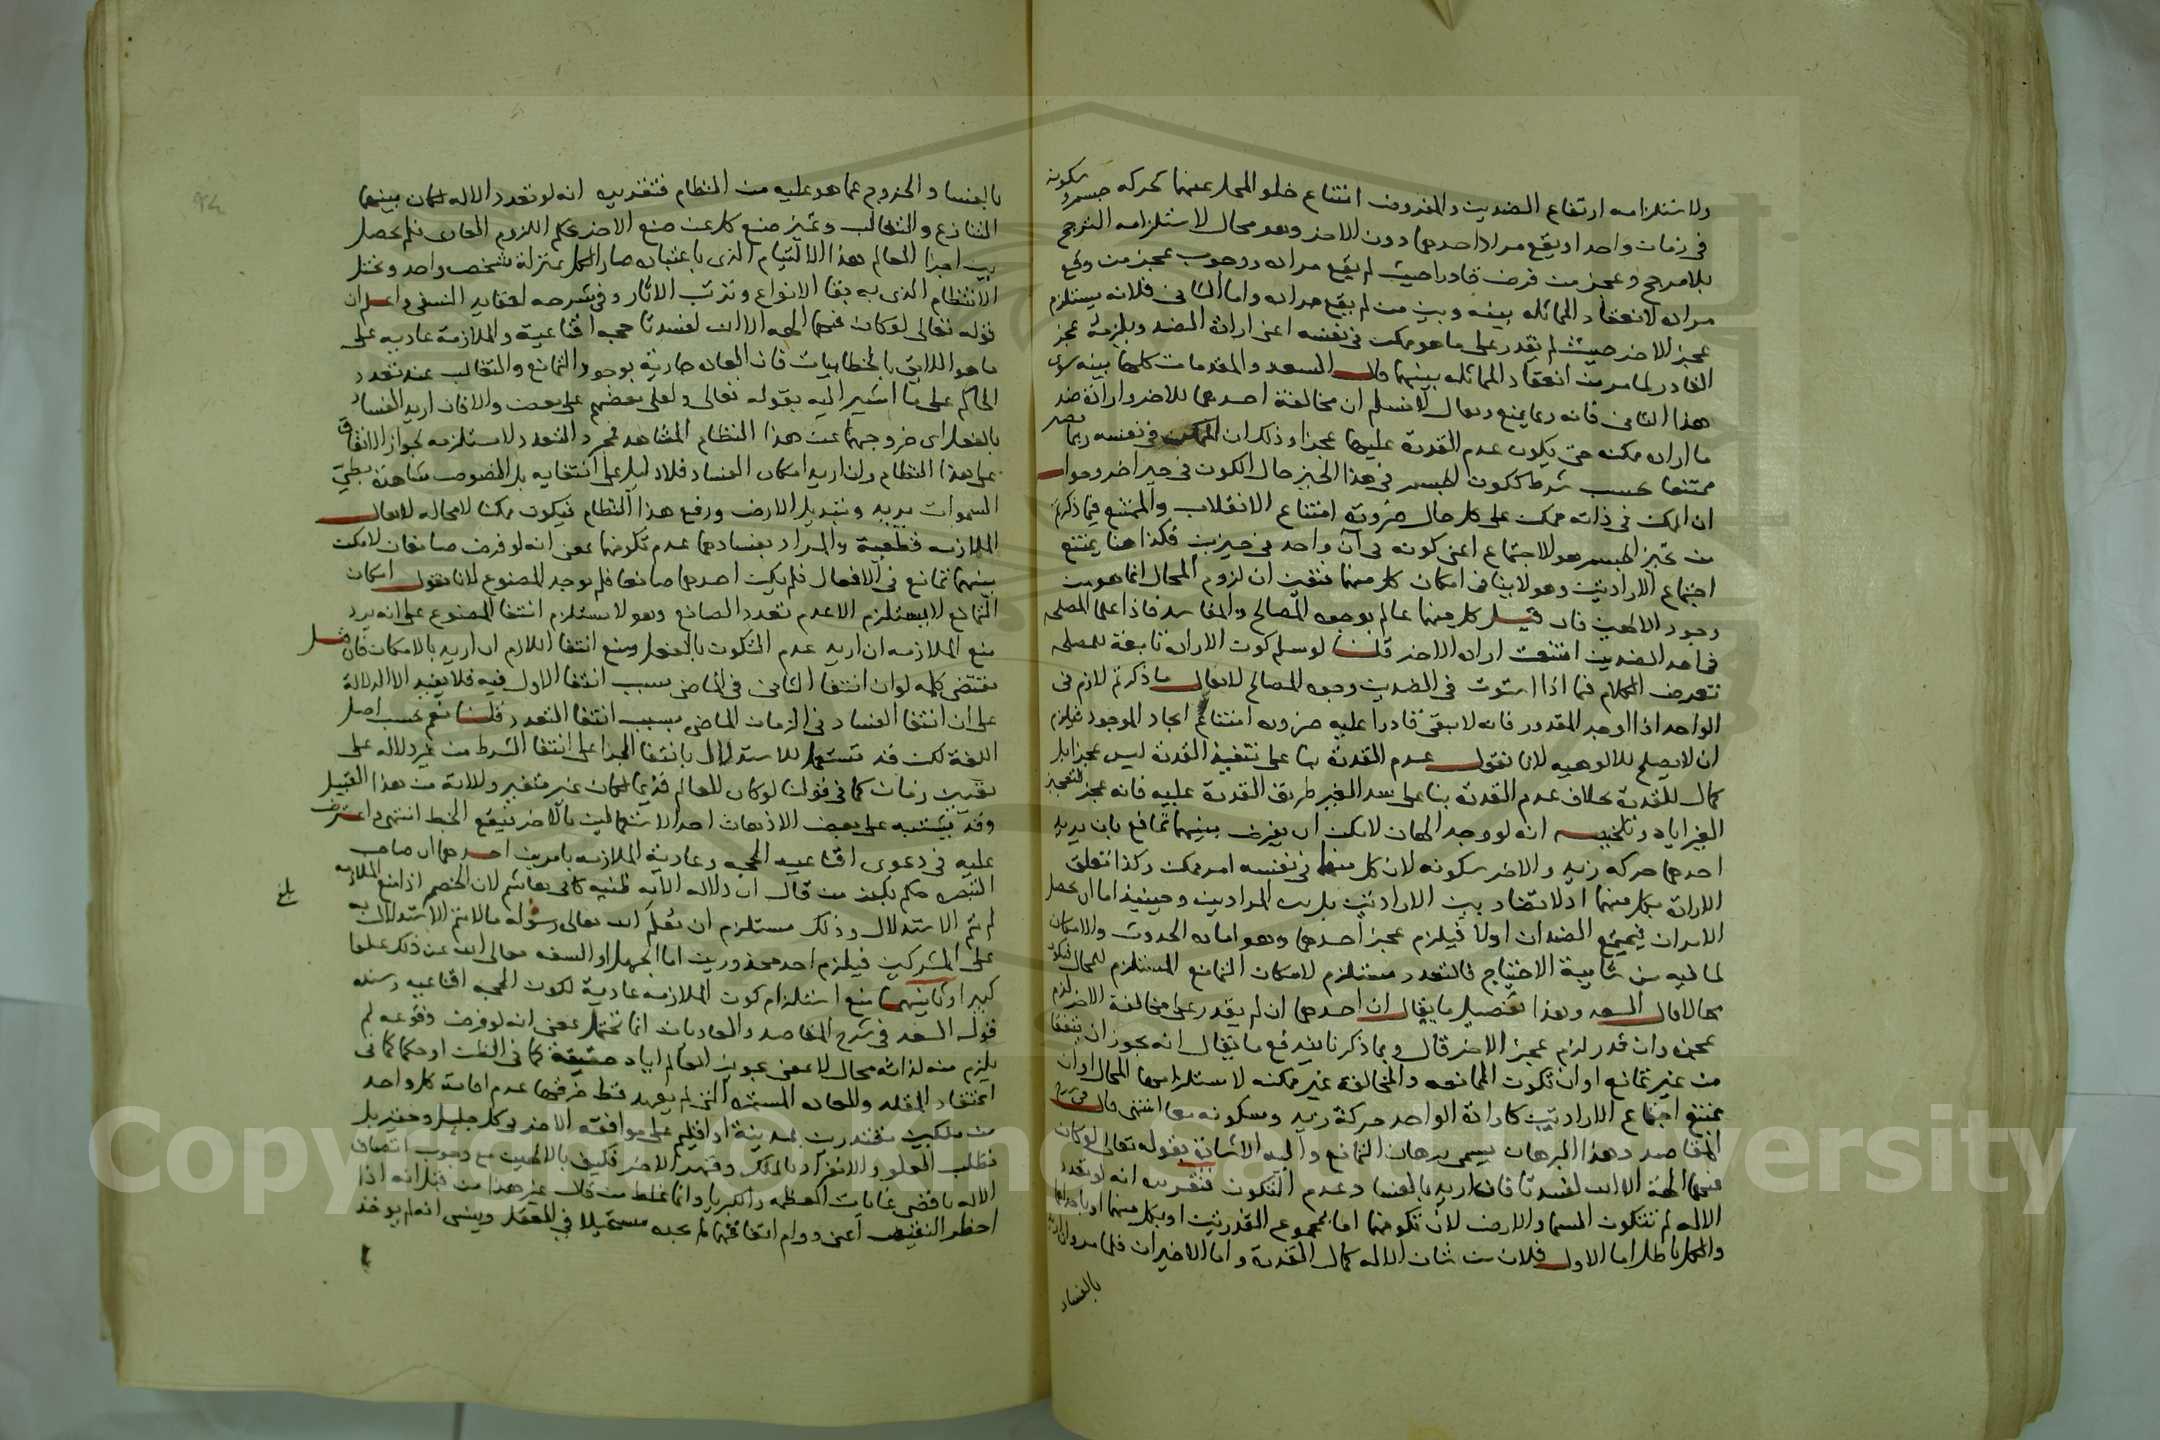 ولاستلزامه ارتفاع الضدين والمفروض امتناع خلو المحل عنهما كحركة جسم وسكونه
في زمان واحد او يقع مراد احدهما دون الاخر وهو محال لاستلزامه الترجيح
بلا مرجح وعجز من فرض قادرا حيث لم يقع مراده ووجوب عجز من وقع
مراده لانعقاد المماثلة بينه وبين من لم يقع مراده واما الثاني فلانه يستلزم
عجز الاخر حيث لم يقدر على ما هو ممكن في نفسه اعني ارادة الضد ويلزمه عجز
القادر لما مر من انعقاد المماثلة بينهما قال السعد والمقدمات كلها بينة سوى
هذا الثاني فانه ربما يمنع ويقال لا نسلم ان مخالفة احدهما للاخر وارادة ضد
ما اراده ممكنه حتى يكون عدم القدرة عليها عجزا وذلك ان الممكن في نفسه ربما يصير
ممتنعا بحسب شرط ككون الجسم في هذا الحيز حال الكون في حيز اخر وجوابه
ان الممكن في ذاته ممكن على كل حال ضرورة امتناع الانقلاب والممتنع فيما ذكرتم
من تحيز الجسم هو الاجتماع اعني كونه في آن واحد في حيزين فكذا هنا يمتنع
اجتماع الارادتين وهو لا ينافي امكان كل منهما فتعين ان لزوم المحال انما هو من
وجود الالهين فان قيل كل منهما عالم بوجوه المصالح والمفاسد فاذا علما المصلحة
في احد الضدين امتنعت ارادة الاخر قلنا لو سلم كون الارادة تابعة للمصلحة
نعرض الكلام فيما اذا استوت في الضدين وجوه المصالح لا يقال ما ذكرتم لازم في
الواحد اذا اوجد المقدور فانه لا يبقى قادرا عليه ضرورة امتناع ايجاد الموجود فيلزم
ان لا يصلح للالوهية لانا نقول عدم القدرة بنا على تنفيذ القدرة ليس عجزا بل
كمال للقدرة بخلاف عدم القدرة بنا على سد الغير طريق القدرة عليه فانه عجز لتعجيز
الغير اياه وتلخيصه انه لو وجد الهان لامكن ان يفرض بينهما تمانع بان يريد
احدهما حركة زيد والاخر سكونه لان كل منهما في نفسه امر ممكن وكذا تعلق
الارادة بكل منهما اذ لا تضاد بين الارادتين بل بين المرادين وحينئذ اما ان يحصل
الامران فيجتمع الضدان اولا فيلزم عجز احدهما وهو امارة الحدوث والامكان
لما فيه من شايبة الاحتياج فالتعدد مستلزم لامكان التمانع المستلزم للمحال فيكون
محالا قال السعد وهذا تفصيل ما يقال ان احدهما ان لم يقدر على مخالفة الاخر لزم
عجزه وان قدر لزم عجز الاخر قال وبما ذكرنا يندفع ما يقال انه يجوز ان يتفقا
من غير تمانع او ان تكون الممانعة والمخالفة غير ممكنه لاستلزامها المحال او ان
يمتنع اجتماع الارادتين كارادة الواحد حركة زيد وسكونه معا انتهى قال في شرح
المقاصد وهذا البرهان يسمى برهان التمانع واليه الاشارة بقوله تعالى لو كان
فيهما الهة الا الله لفسدتا فان اريد بالفساد عدم التكون فتقريره انه لو تعدد
الاله لم تتكون السما والارض لان تكونهما اما بمجموع القدرتين او بكل منهما او باحداهما
والكل باطل اما الاول فلان من شان الاله كمال القدرة واما الاخيران فلما مر وان اريد
بالفساد
بالفساد والخروج عما هو عليه من النظام فتقديره انه لو تعدد الاله لكان بينهما
التنازع والتغالب وتميز صنع كل عن صنع الاخر بحكم اللزوم العادي فلم يحصل
بين اجزا العالم هذا الالتيام الذي باعتباره صار الكل بمنزلة شخص واحد ويختل
الانتظام الذي به بقا الانواع وترتب الاثار وفي شرحه لعقايد النسفي واعلم ان
قوله تعالى لو كان فيهما الهة الا الله لفسدتا حجة اقناعية والملازمة عادية على
ما هو اللايق بالخطابيات فان العادة جارية بوجود التمانع والتغالب عند تعدد
الحاكم على ما اشير اليه بقوله تعالى ولعلى بعضهم على بعض والا فان اريد الفساد
بالفعل اى خروجهما عن هذا النظام المشاهد فمجرد التعدد لا يستلزمه لجواز الاتفاق
على هذا النظام وان اريد امكان الفساد فلا دليل على انتفايه بل النصوص شاهدة بطي
السموات وتبديل الارض ورفع هذا النظام فيكون ممكنا لا محالة لا يقال
الملازمة قطعية والمراد بفسادهما عدم تكونهما بمعنى انه لو فرض صانعان لامكن
بينهما تمانع في الافعال فلم يكن احدهما صانعا فلم يوجد المصنوع لانا نقول امكان
التمانع لا يستلزم الا عدم تعدد الصانع وهو لا يستلزم انتفا المصنوع على انه يرد
منع الملازمة ان اريد عدم التكون بالفعل ومنع انتفا اللازم ان اريد بالامكان فان قيل
مقتضى كلمه لو ان انتفا الثاني في الماضي بسبب انتفا الاول فيه فلا يفيد الا الدلالة
على ان انتفا الفساد في الزمان الماضي بسبب انتفا التعدد قلنا نعم بحسب اصل
اللغة لكن قد تستعمل للاستدلال بانتفا الجزا على انتفا الشرط من غير دلالة على
تعيين زمان كما في قولنا لو كان العالم قديما لكان غير متغير والاية من هذا القبيل
وقد يشتبه على بعض الاذهان احد الاستعمالين بالاخر فيقع الخبط انتهى واعترض
عليه في دعوى اقناعية الحجة وعادية الملازمة بامرين احدهما ان صاحب
التبصرة حكم بكفر من قال ان دلالة الاية ظنية كابي هاشم لان الخصم اذا منع الملازمة
لم يتم الاستدلال وذلك مستلزم ان يعلم الله تعالى رسوله ما لا يتم الاستدلال به
بلغ
على المشركين فيلزم احد محذورين اما الجهل او السفه تعالى الله عن ذلك علوا
كبيرا وثانيهما منع استلزام كون الملازمة عادية لكون الحجة اقناعية وسنده
قول السعد في شرح المقاصد والعاديات انما تحتمل بمعنى انه لو فرض وقوعه لم
يلزم منه لذاته محال لا بمعنى تجويز العالم اياه حقيقة كما في الظن او حكما كما في
اعتقاد المقلد والعادة المستمرة التي لم يعهد قط خرقها عدم اقامة كل واحد
من ملكين مقتدرين بمدينة او اقليم على موافقة الاخر في كل جليل وحقير بل
تطلب العلو والانفراد بالملك وقهر الاخر فكيف بالالهين مع وجوب اتصاف
الاله باقصى غايات العظمة والكبريا وانما غلط من قال غير هذا من قبل انه اذا
اخطر النقيض اعني دوام اتفاقهما لم يجده مستحيلا في العقل وينسى انه لم يوخذ